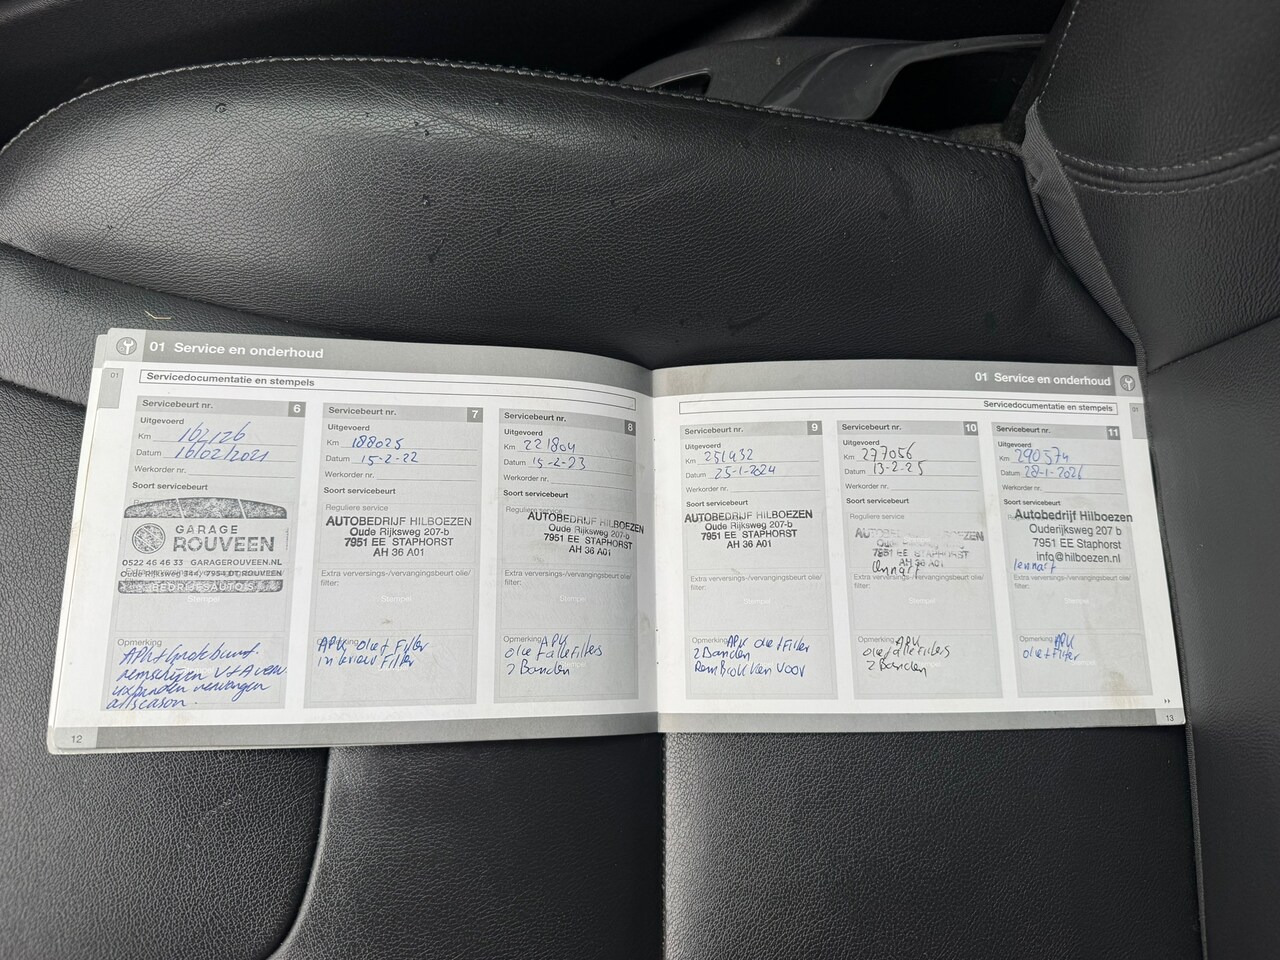 01 Service en onderhoud
01
Servicedocumentatie en stempels
Servicebeurt nr. 6
Uitgevoerd
Km 162126
Datum 16/02/2021
Werkorder nr.
Soort servicebeurt
GARAGE
ROUVEEN
0522 46 46 33 GARAGEROUVEEN.NL
Oude Rijksweg 344, 7954 DT, ROUVEEN
BEDRIJFSAUTO'S
Stempel
Opmerking
APK + Grote beurt
remschijven V+A
vervangen
allseason.
12
Servicebeurt nr. 7
Uitgevoerd
Km 188025
Datum 15-2-22
Werkorder nr.
Soort servicebeurt
Reguliere service
AUTOBEDRIJF HILBOEZEN
Oude Rijksweg 207-b
7951 EE STAPHORST
AH 36 A01
Extra verversings-/vervangingsbeurt olie/
filter:
Stempel
Opmerking
APK olie+Filter
interieur Filter
Servicebeurt nr. 8
Uitgevoerd
Km 221804
Datum 15-2-23
Werkorder nr.
Soort servicebeurt
Reguliere service
AUTOBEDRIJF HILBOEZEN
Oude Rijksweg 207-b
7951 EE STAPHORST
AH 36 A01
Extra verversings-/vervangingsbeurt olie/
filter:
Stempel
Opmerking APK
olie+alle Filters
2 Banden
01 Service en onderhoud
01
Servicedocumentatie en stempels
Servicebeurt nr. 9
Uitgevoerd
Km 251432
Datum 25-1-2024
Werkorder nr.
Soort servicebeurt
Reguliere service
AUTOBEDRIJF HILBOEZEN
Oude Rijksweg 207-b
7951 EE STAPHORST
AH 36 A01
Extra verversings-/vervangingsbeurt olie/
filter:
Stempel
Opmerking APK olie+Filter
2 Banden
Remblokken voor
Servicebeurt nr. 10
Uitgevoerd
Km 277056
Datum 13-2-25
Werkorder nr.
Soort servicebeurt
Reguliere service
AUTOBEDRIJF HILBOEZEN
7951 EE STAPHORST
AH 36 A01
Lennart
Extra verversings-/vervangingsbeurt olie/
filter:
Stempel
Opmerking APK
olie+alle Filters
2 Banden
Servicebeurt nr. 11
Uitgevoerd
Km 290574
Datum 28-1-2026
Werkorder nr.
Soort servicebeurt
Reguliere service
Autobedrijf Hilboezen
Ouderijksweg 207 b
7951 EE Staphorst
info@hilboezen.nl
lennart
Extra verversings-/vervangingsbeurt olie/
filter:
Stempel
Opmerking APK
olie+Filter
13